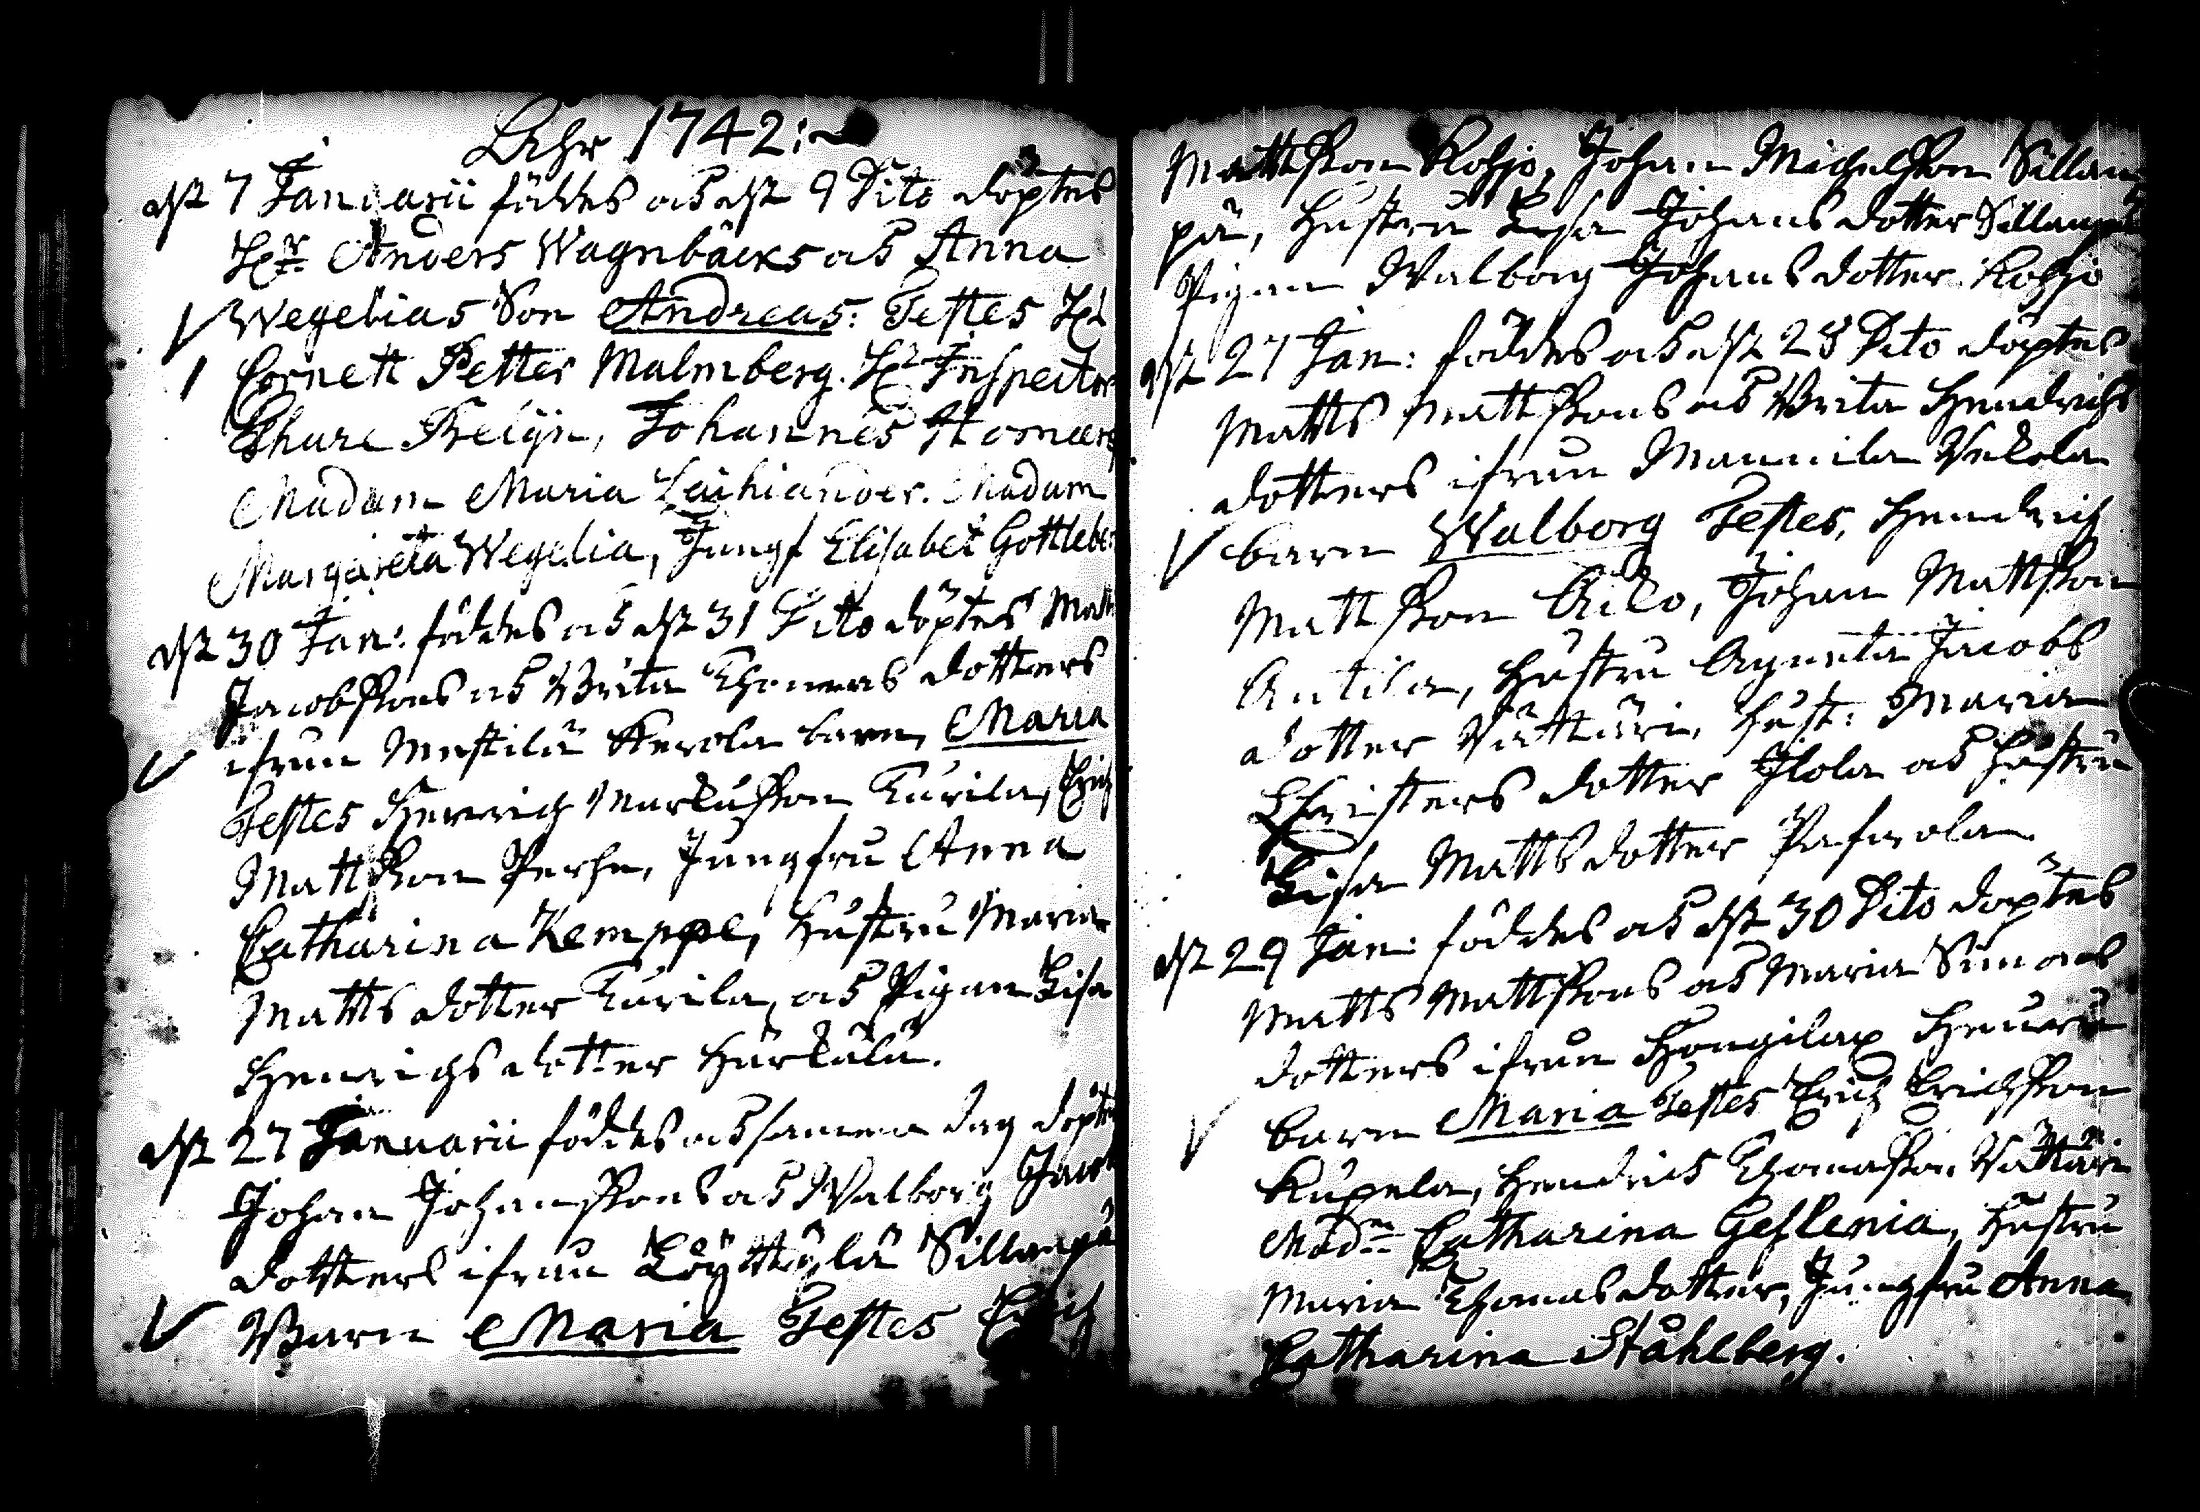 Åhr 1742:
dh 7 Januarii föddes och dh 9 Dito döptes
Hr Anders Wagnbäcks och Anna
Wegelias Son Andreas: Testes Hr
1 Cornett Petter Malmberg. Hr Inspector
Thure Johannes
Madam Maria Madam
Margareta Wegelia, Jungf Elisabet Gottleben
dh 30 Jan: föddes och dh 31 Dito döptes Matts
Jacobssons och Brita Thomas dotters
ifrån Mustilä Kerola barn, Maria
Testes Henrich Markusson Turila, Erich
Mattsson Perhe, Jungfru Anna
Catharina Kemppe, hustru Maria
Matts dotter Turila, och Pigan Lisa
Henrichs dotter Härkälä.
dh 27 Januarii föddes och samma dag döptes
Johan Johanssons och Walborg Jacobs
dotters ifrån Löyttylä Sillanpä
Barn Maria Testes Erich
Mattsson Kohjo, Johan Michelsson Sillan
pä, hustru Lisa Johans dotter Sillanpä
Pigan Walborg Johans dotter Kohjo
dh 27 Jan: föddes och dh 28 Dito döptes
Matts Mattssons och Brita Hendrichs
dotters ifrån Mannila Ukkola
barn Walborg Testes, Hendrich
Mattsson Äilo, Johan Mattsson
Antila, hustru Agneta Jacobs
dotter Vättäri, hust: Maria
Christers dotter Ilola och hustru
Lisa Matts dotter Pafwola
dh 29 Jan: föddes och dh 30 Dito döptes
Matts Mattssons och Maria Simons
dotters ifrån Hongilax
barn Maria Testes Erich Erichsson
Kupela, Hendrich Thomasson Vättäri
Madm Catharina Geslenia, hustru
Maria Thomas dotter, Jungfru Anna
Catharina Ståhlberg.